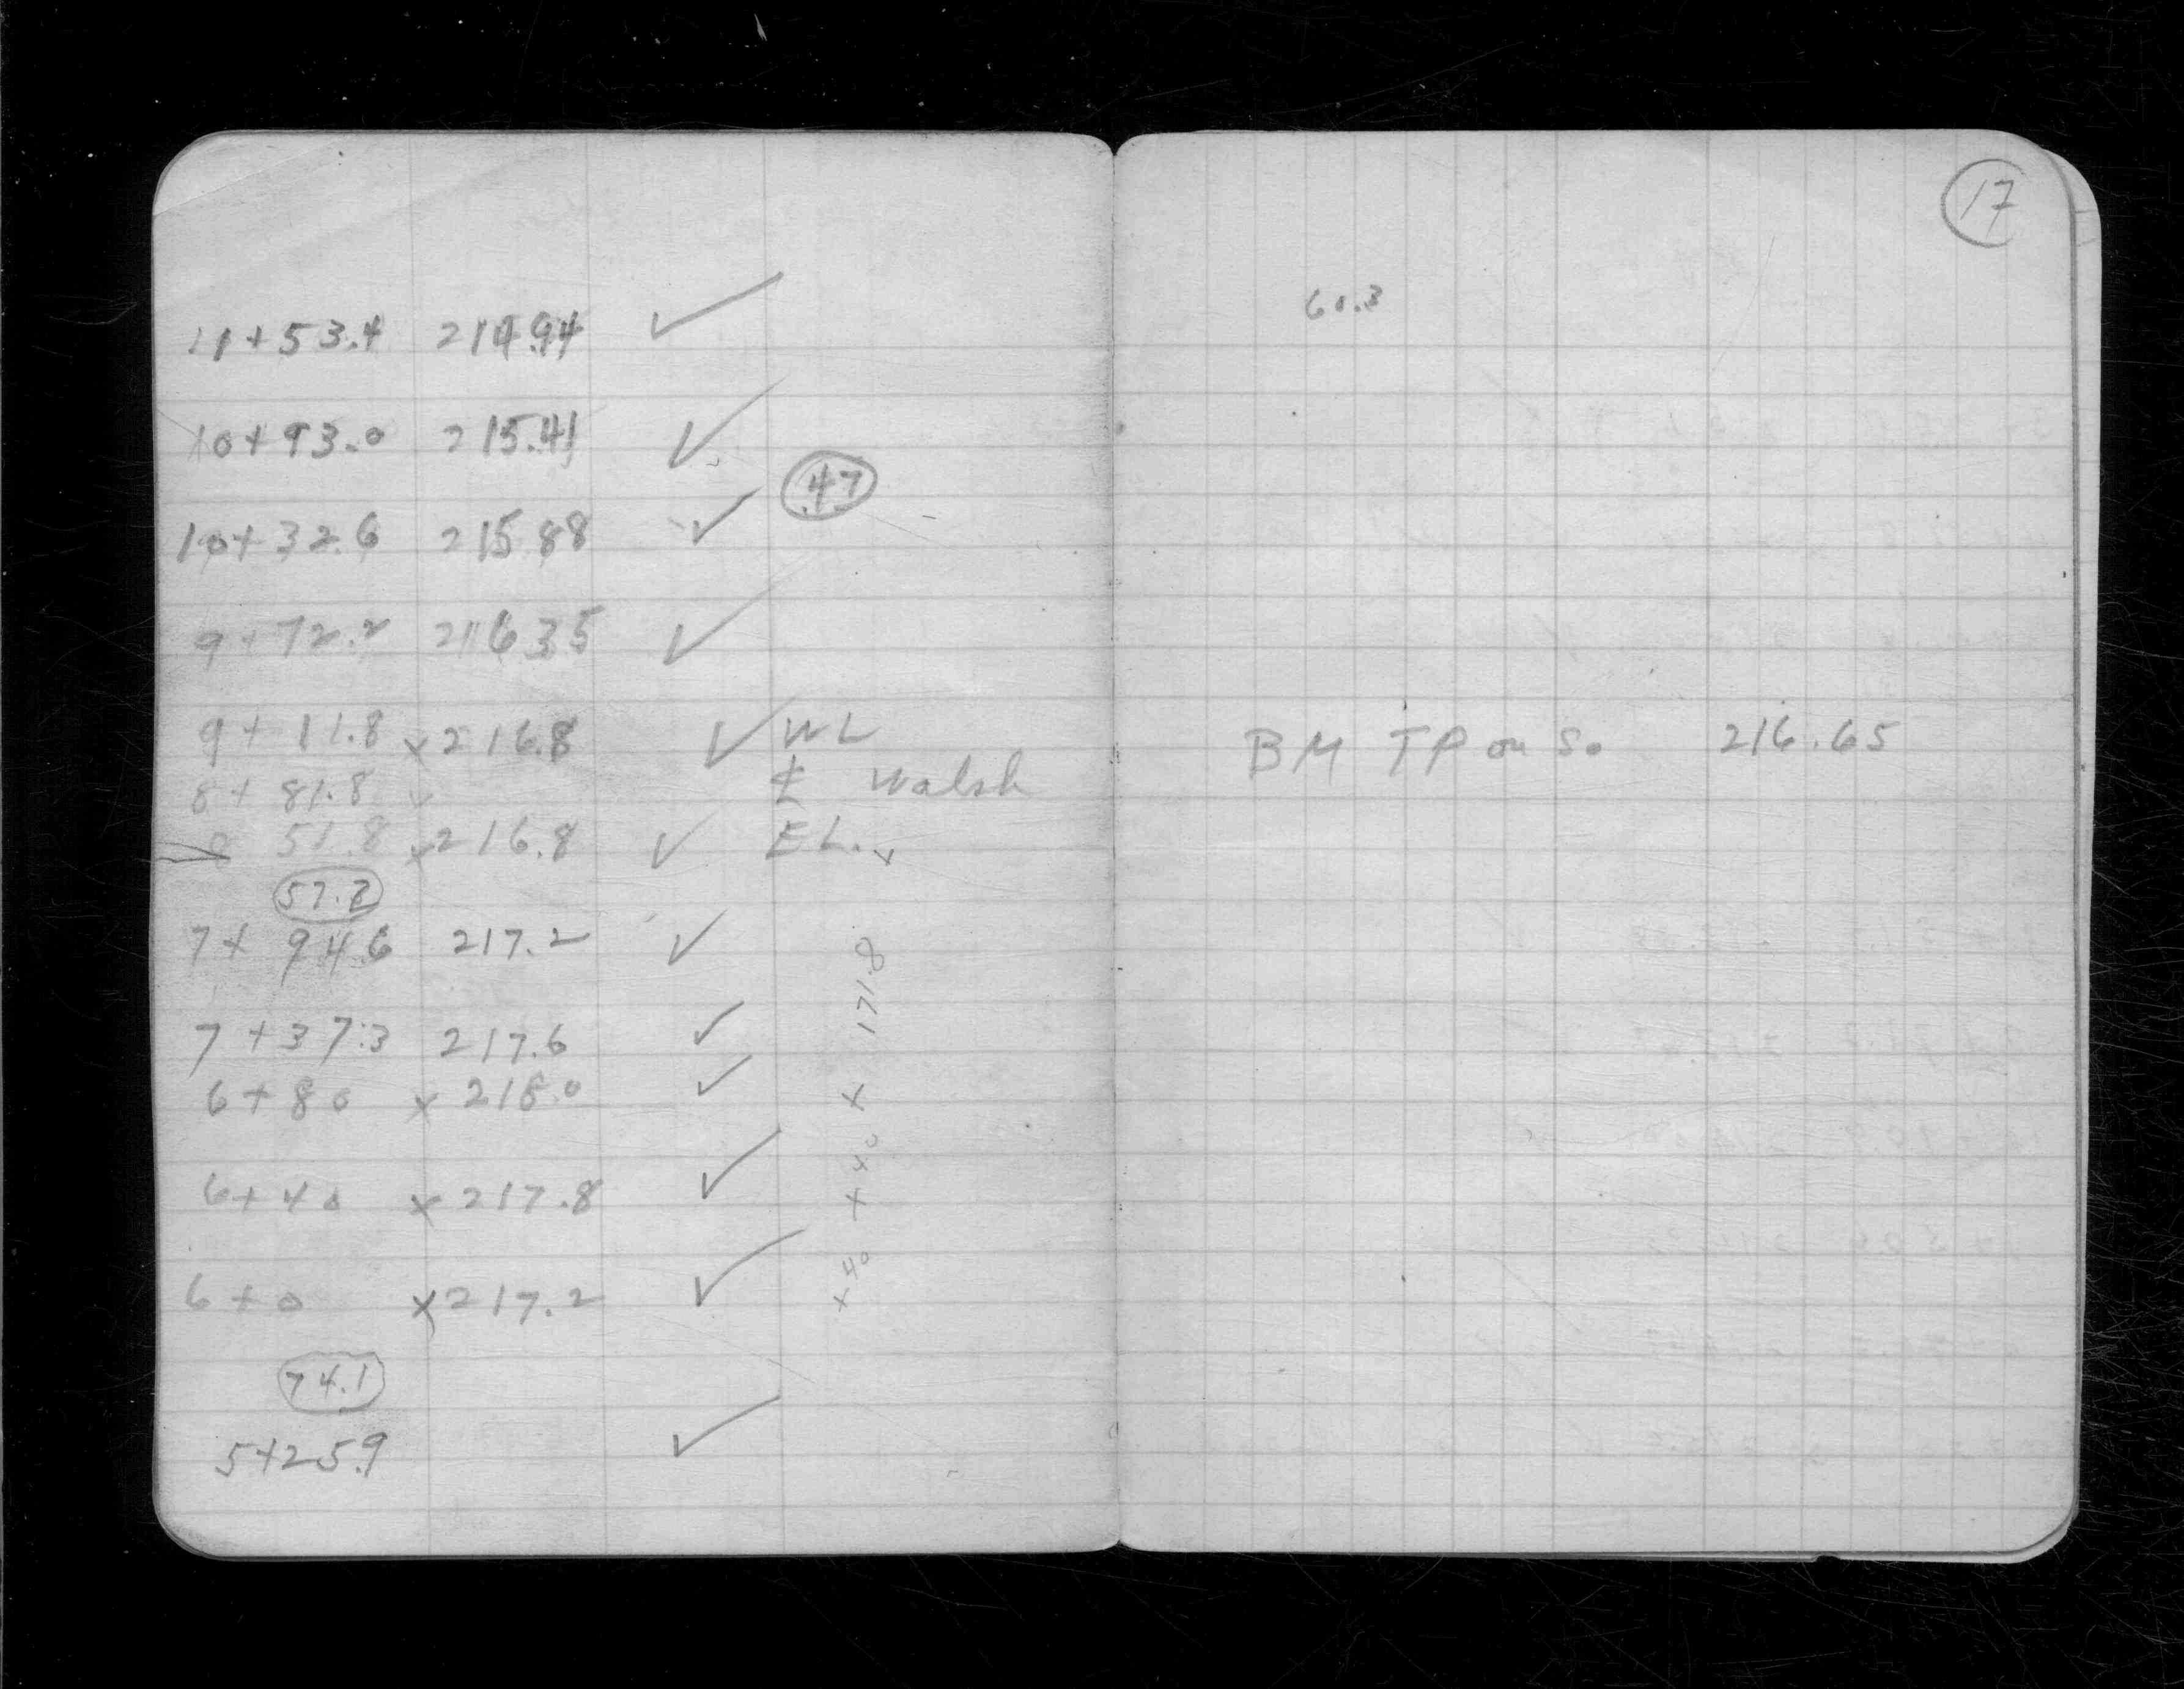 11+53.4 214.94 ✓
10+93.0 215.41 ✓
.47
10+32.6 215.88 ✓
9+72.2 216.35 ✓
9+11.8 x 216.8 ✓ WL
8+81.8 ℄ Walsh
8 51.8 x 216.8 ✓ EL.
57.2
7+94.6 217.2 ✓
7+37.3 217.6 ✓
6+80 x 218.0 ✓
6+40 x 217.8 ✓
6+0 x 217.2 ✓
74.1
5+25.9 ✓
x 40 x 40 x 171.8
17
60.3
BM TP on So 216.65